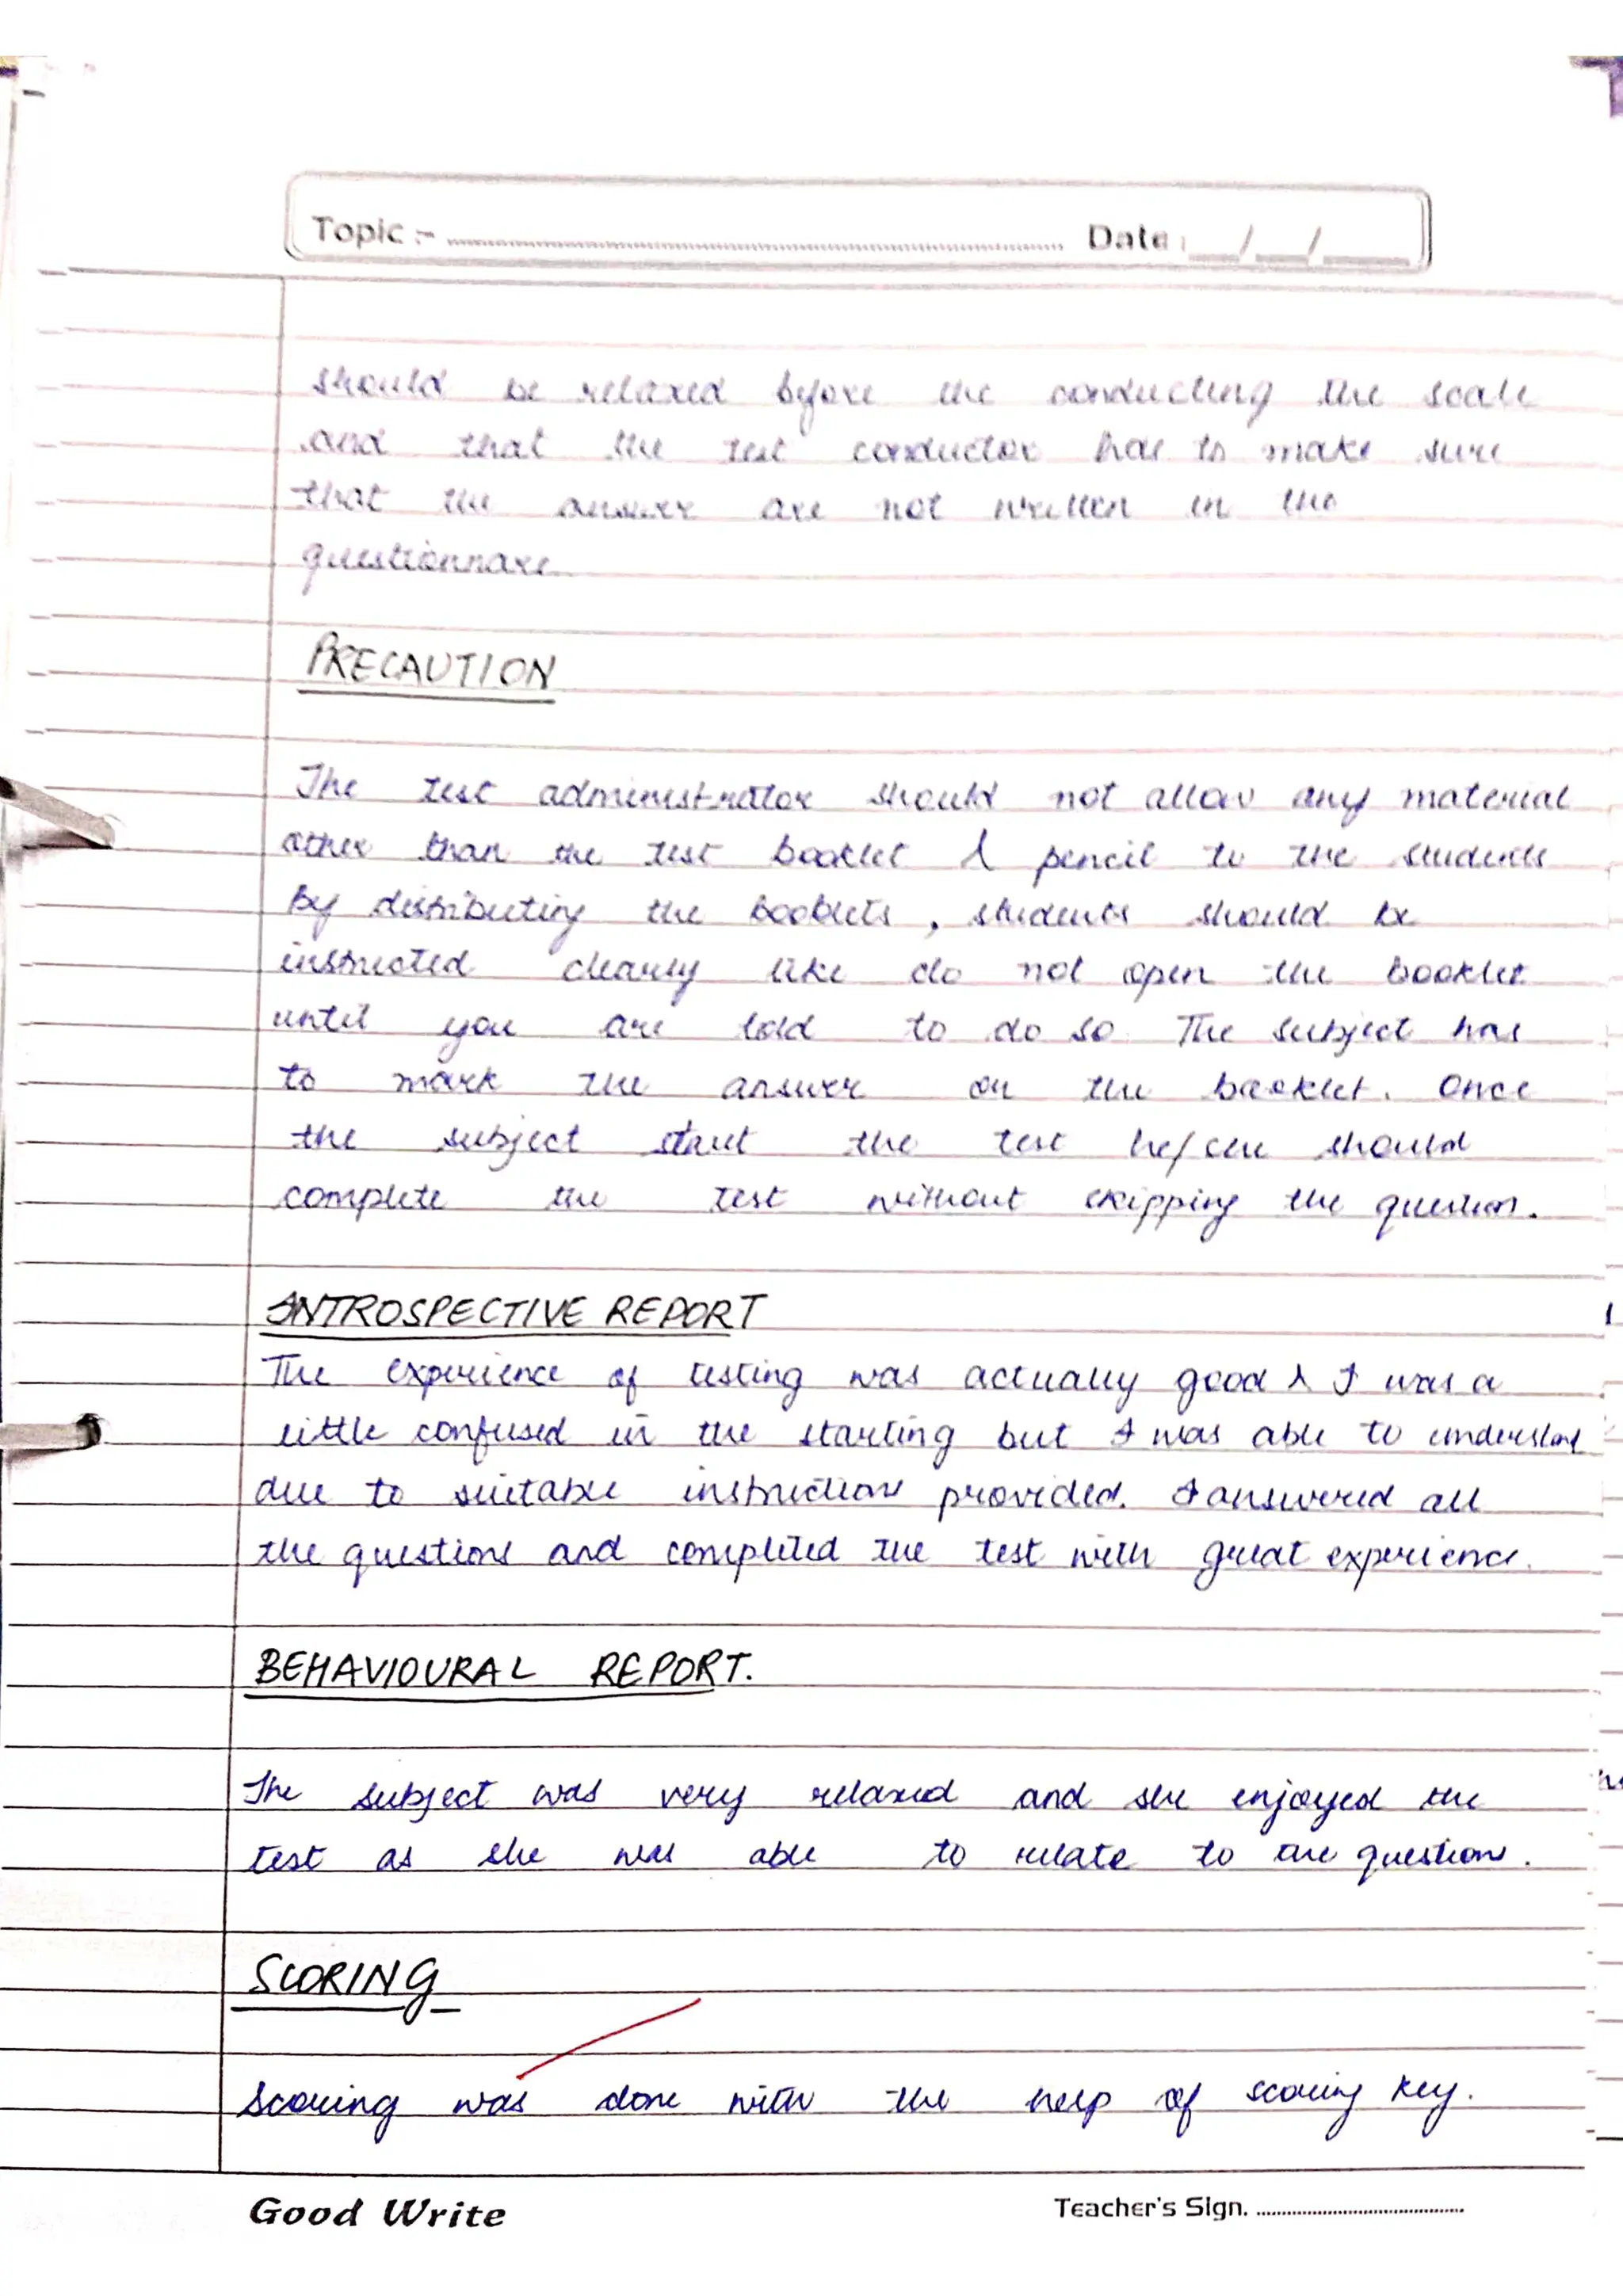 Topic :- ........................ Date : __/__/____
should be relaxed before the conducting the scale
and that the test conductor has to make sure
that the answer are not written in the
questionnare
PRECAUTION
The test administrator should not allow any material
other than the test booklet & pencil to the students
by distributing the booklets, students should be
instructed clearly like do not open the booklet
until you are told to do so. The subject has
to mark the answer on the booklet. Once
the subject start the test he/she should
complete the test without skipping the question.
INTROSPECTIVE REPORT
The experience of testing was actually good & I was a
little confused in the starting but I was able to understand
due to suitable instructions provided. I answered all
the questions and completed the test with great experience.
BEHAVIOURAL REPORT.
The subject was very relaxed and she enjoyed the
test as she was able to relate to the questions.
SCORING
Scoring was done with the help of scoring key.
Good Write Teacher's Sign. ........................